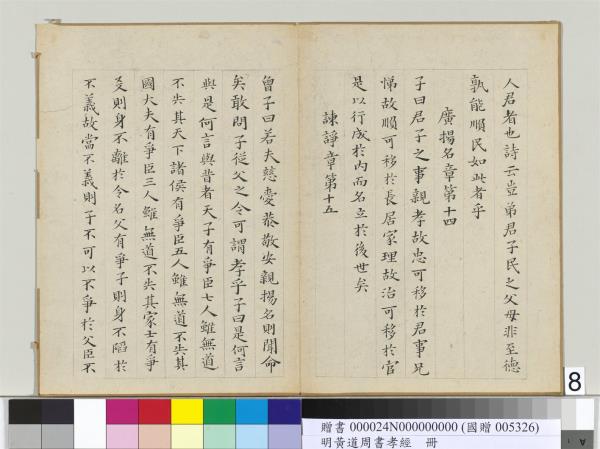 人君者也詩云豈弟君子民之父母非至德
孰能順民如此者乎
廣揚名章第十四
子曰君子之事親孝故忠可移於君事兄
悌故順可移於長居家理故治可移於官
是以行成於內而名立於後世矣
諫諍章第十五
曾子曰若夫慈愛恭敬安親揚名則聞命
矣敢問子從父之令可謂孝乎子曰是何言
與是何言與昔者天子有爭臣七人雖無道
不失其天下諸侯有爭臣五人雖無道不失其
國大夫有爭臣三人雖無道不失其家士有爭
友則身不離於令名父有爭子則身不陷於
不義故當不義則子不可以不爭於父臣不
8
贈書 000024N000000000 (國贈 005326)
明黃道周書孝經 冊